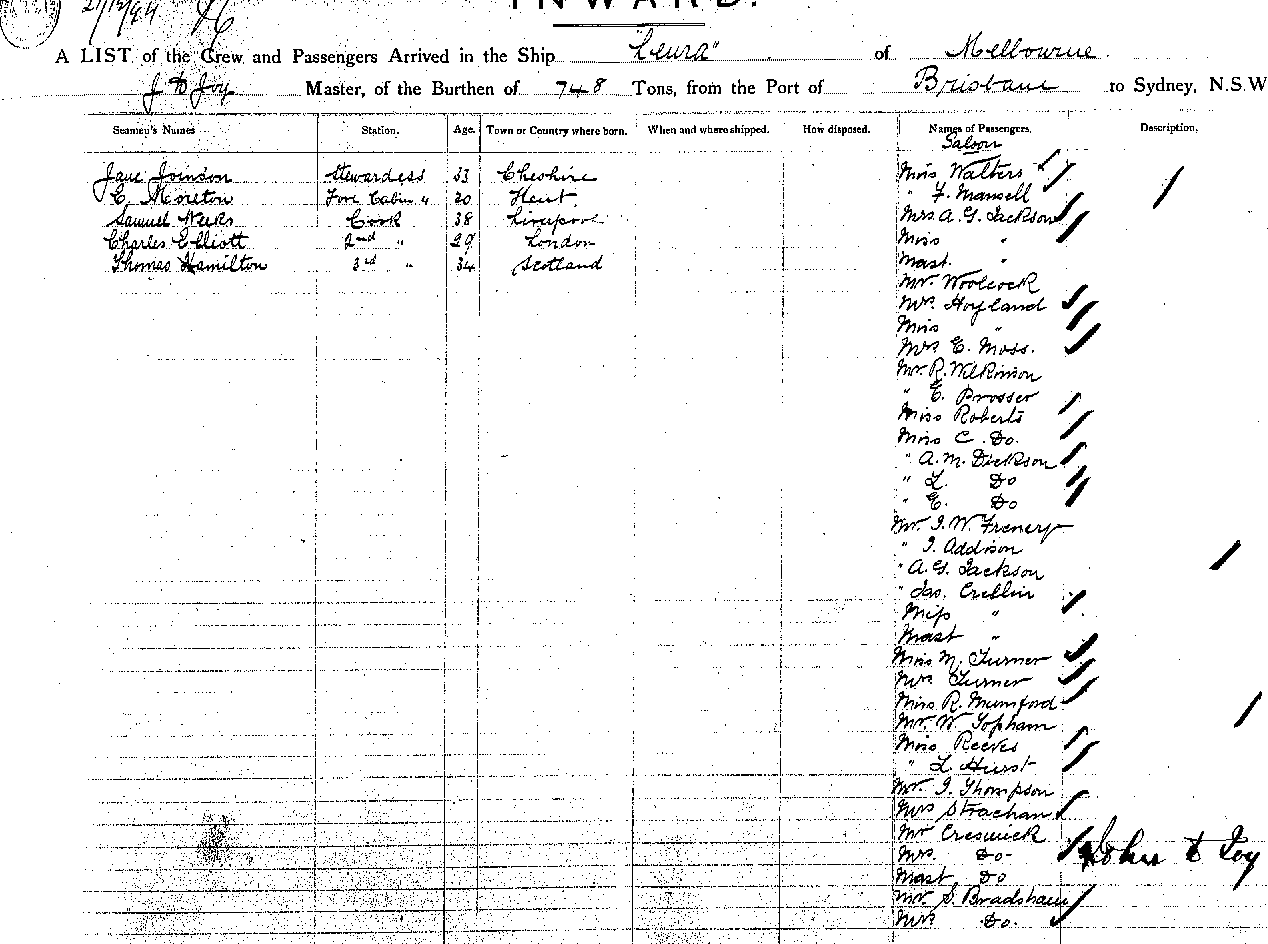 INWARD.
21/12/94
A LIST of the Crew and Passengers Arrived in the Ship "Leura" of Melbourne
J Joy Master, of the Burthen of 748 Tons, from the Port of Brisbane to Sydney, N.S.W
Seamen's Names Station. Age. Town or Country where born. When and where shipped. How disposed. Names of Passengers. Description.
Saloon
Jane Joinson Stewardess 33 Cheshire Miss Walters
E. Moreton Fore Cabin " 20 Kent " F. Mansell
Samuel Weeks Cook 38 Liverpool Mrs A. G. Jackson
Charles Elliott 2nd " 29 London Miss "
Thomas Hamilton 3rd " 34 Scotland Mast. "
Mr. Woolcock
Mrs. Hoyland
Miss "
Mrs E. Moss.
Mr. R. Wilkinson
" E. Prosser
Miss Roberts
Miss C. Do.
" A. M. Dickson
" L. Do
" E. Do
Mr. J. W.
" J. Addison
" A. G. Jackson
" Jas. Crellin
Miss "
Mast "
Miss M. Turner
Mrs Turner
Miss R. Mumford
Mr. W. Topham
Miss Reeves
" L Hurst
Mr. J. Thompson
Mrs Strachan
Mr Creswick
Mrs. Do John Joy
Mast Do
Mr S. Bradshaw
Mrs Do.